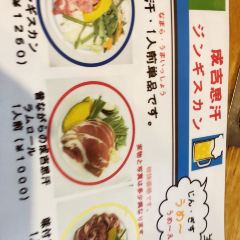 成吉思汗
ジンギスカン
なまら・うまいっしょ
汗・1人前単品です。
ギスカン
¥1260)
昔ながらの成吉思汗
ラムロール
1人前(¥1000)
じん・ぎす
うめ〜
味付